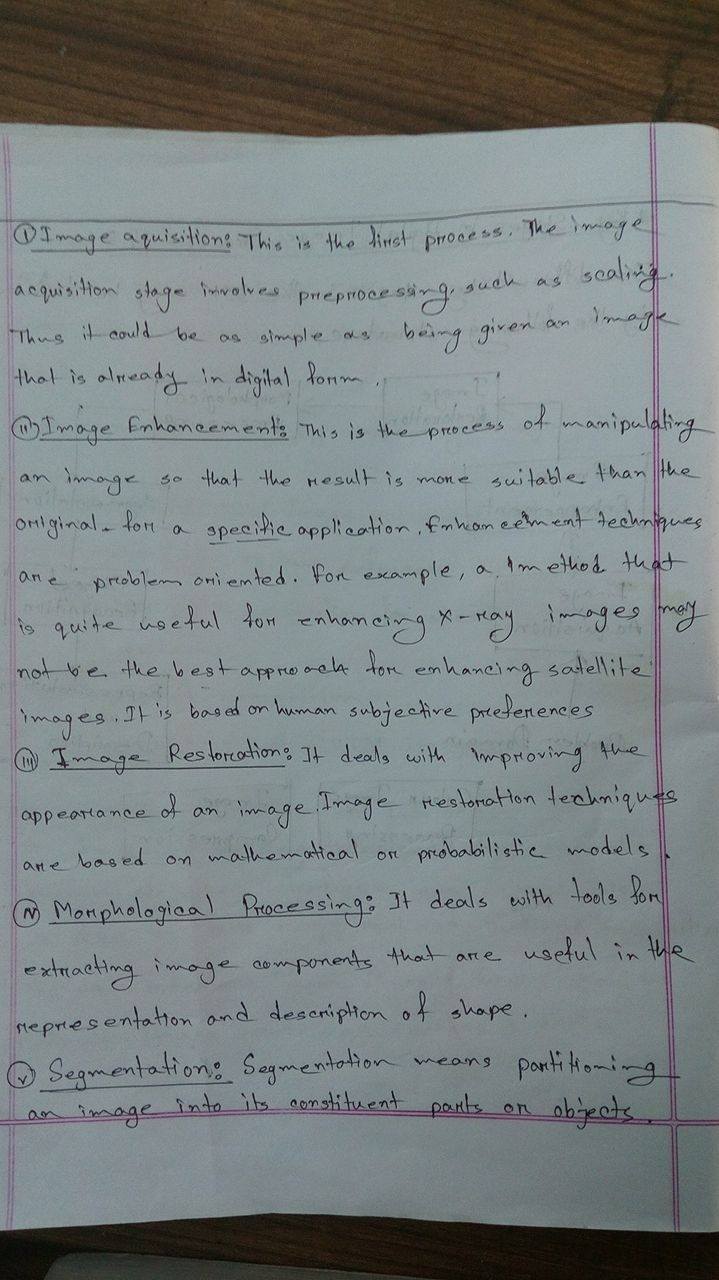 ① Image aquisition: This is the first process. The image
acquisition stage involves preprocessing, such as scaling.
Thus it could be as simple as being given an image
that is already in digital form.
(ii) Image Enhancement: This is the process of manipulating
an image so that the result is more suitable than the
original for a specific application. Enhancement techniques
are problem oriented. For example, a method that
is quite useful for enhancing X-ray images may
not be the best approach for enhancing satellite
images. It is based on human subjective preferences
(iii) Image Restoration: It deals with improving the
appearance of an image. Image restoration techniques
are based on mathematical or probabilistic models.
(iv) Morphological Processing: It deals with tools for
extracting image components that are useful in the
representation and description of shape.
(v) Segmentation: Segmentation means partitioning
an image into its constituent parts or objects.